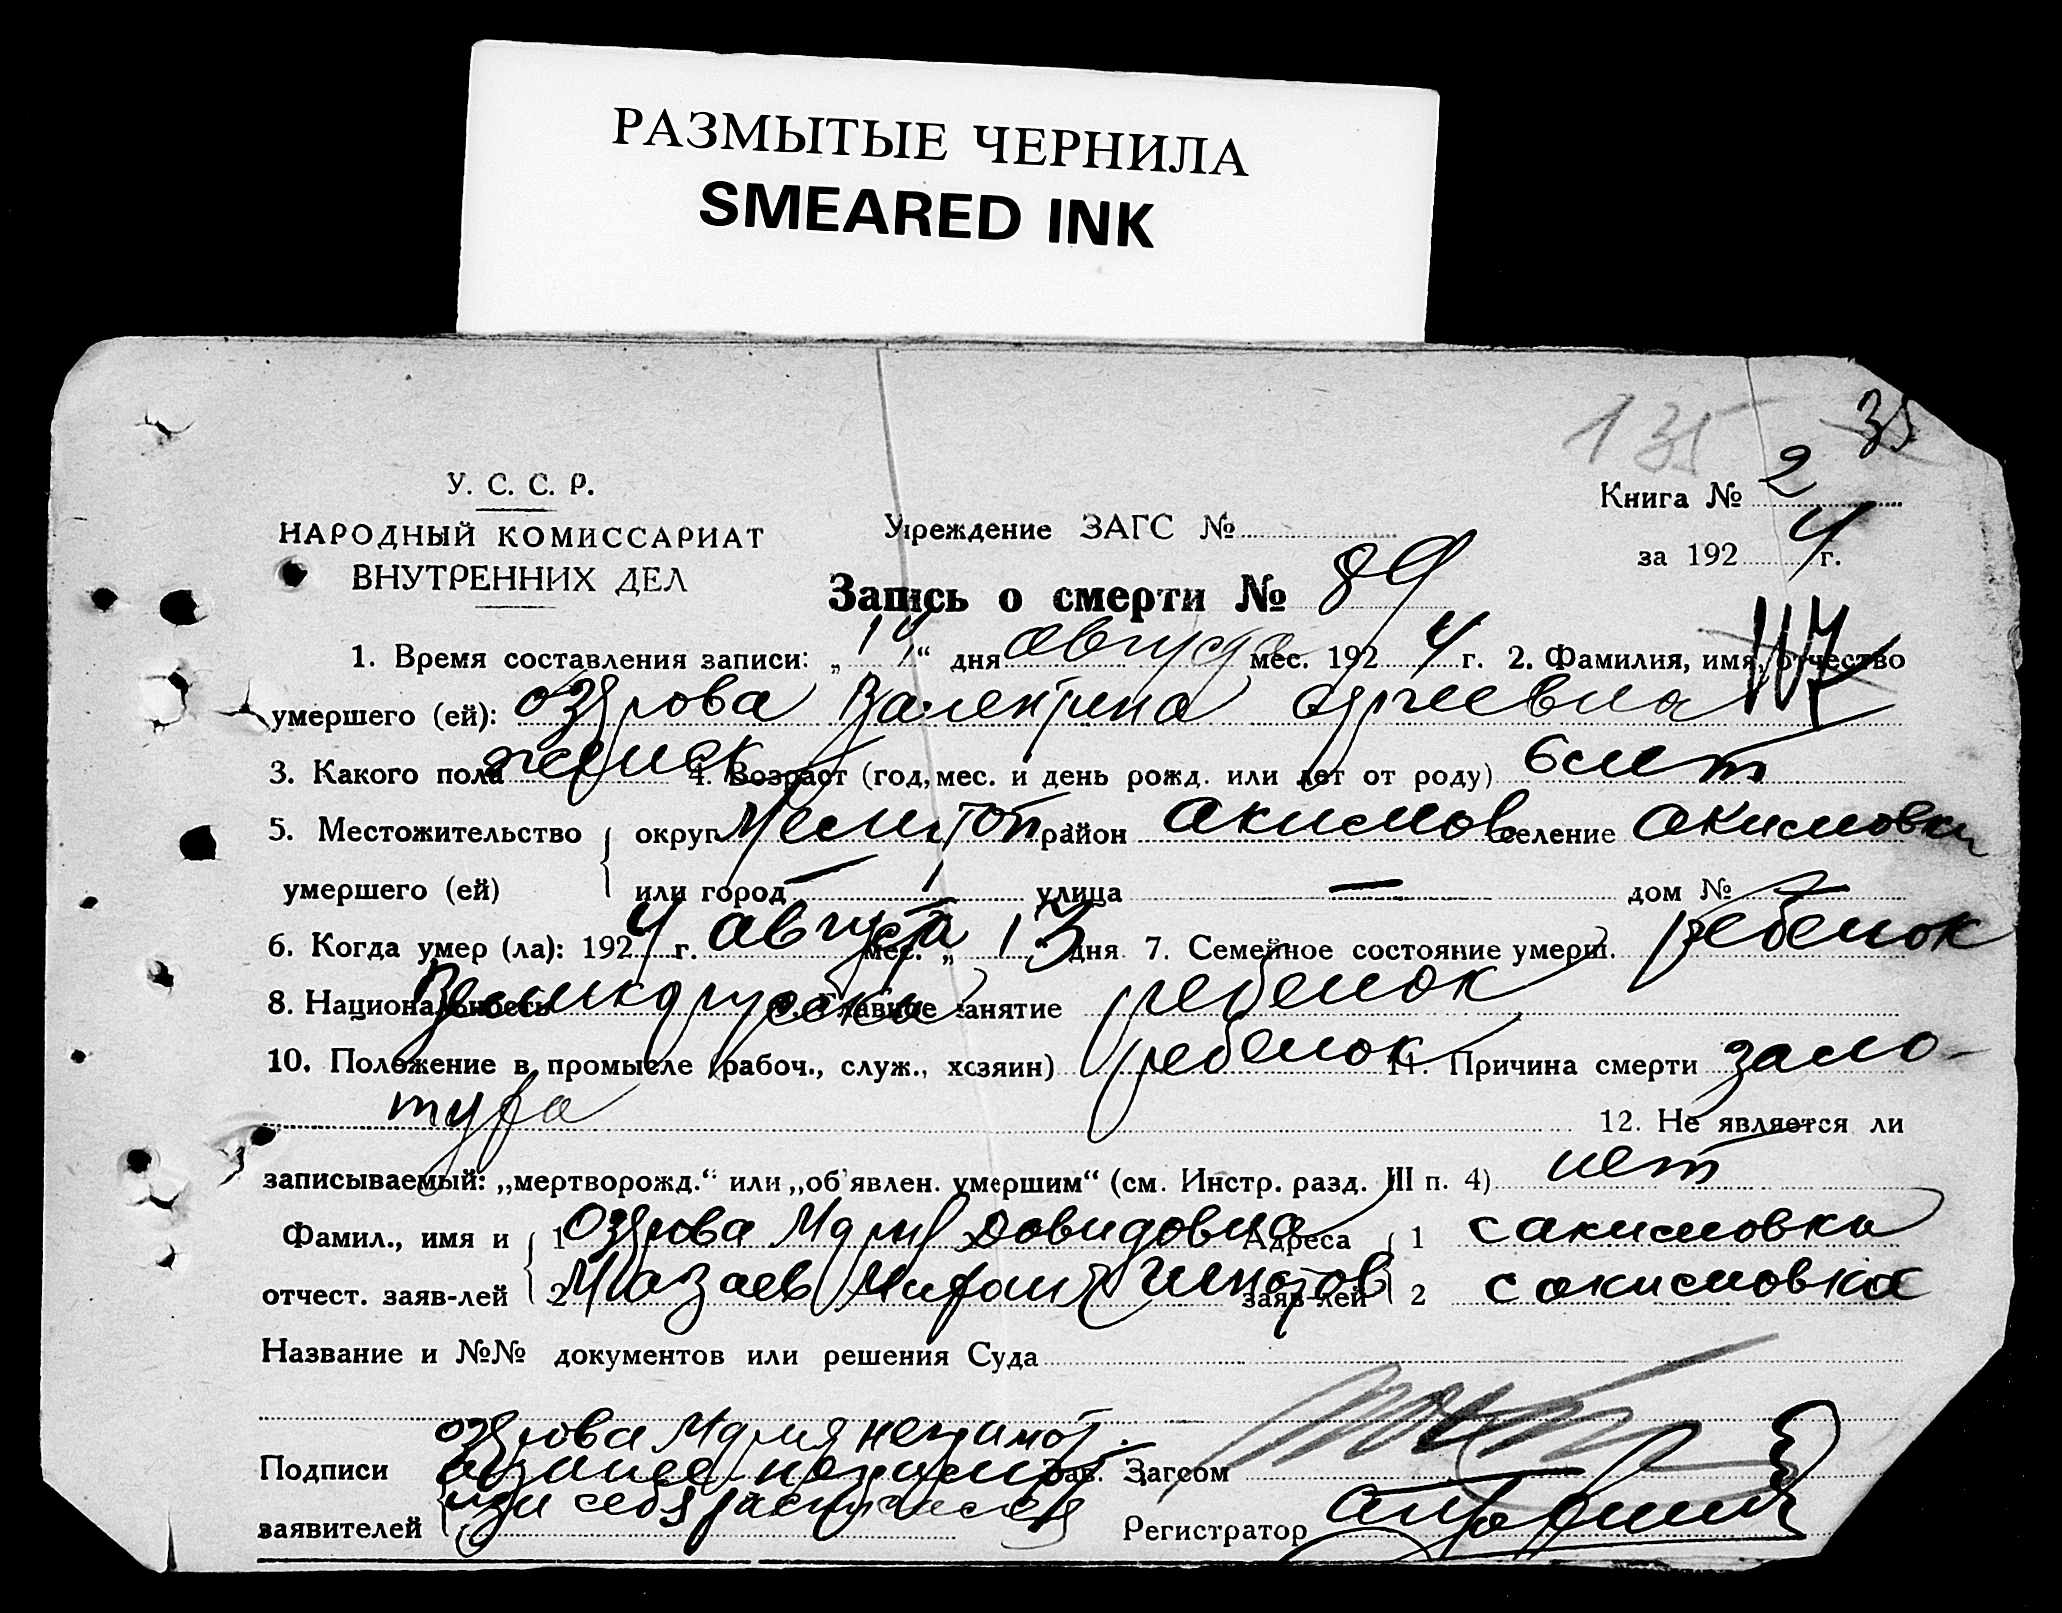 РАЗМЫТЫЕ ЧЕРНИЛА
SMEARED INK
135 35
У. С. С. Р.
НАРОДНЫЙ КОМИССАРИАТ
ВНУТРЕННИХ ДЕЛ
Учреждение ЗАГС №
Книга № 2
за 1924 г.
Запись о смерти № 89
107
1. Время составления записи: „14“ дня августа мес. 1924 г. 2. Фамилия, имя, отчество
умершего (ей): Валентина
3. Какого пола женск 4. Возраст (год, мес. и день рожд. или лет от роду) 6 лет
5. Местожительство округ Мелитоп район Акимов селение Акимовка
умершего (ей) или город — улица — дом № —
6. Когда умер (ла): 1924 г. августа мес. „13“ дня 7. Семейное состояние умерш. ребенок
8. Национальность Великорусска 9. Главное занятие ребенок
10. Положение в промысле (рабоч., служ., хозяин) ребенок 11. Причина смерти
12. Не является ли
записываемый: „мертворожд.“ или „об'явлен. умершим“ (см. Инстр. разд. III п. 4) нет
Фамил., имя и 1 Довидовна Адреса 1 с Акимовка
отчест. заяв-лей 2 заяв-лей 2 с Акимовка
Название и №№ документов или решения Суда
Мария неграмот.
Подписи Зав. Загсом
заявителей Регистратор